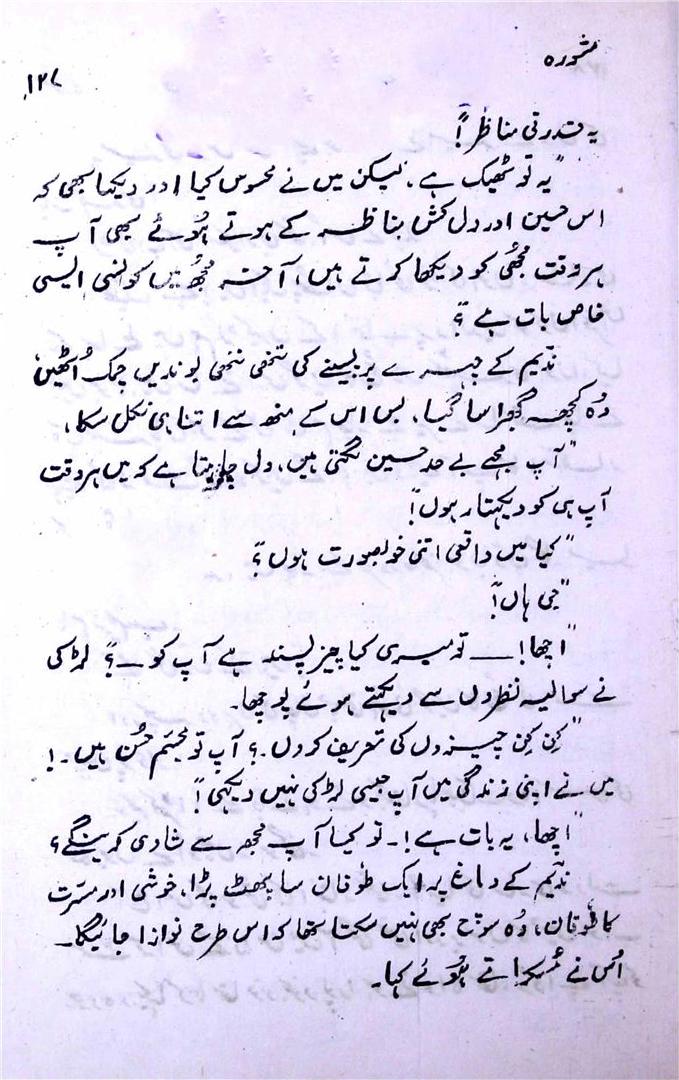 مشورہ
۱۲۷
یہ قدرتی مناظر!"
"یہ تو ٹھیک ہے، لیکن میں نے محسوس کیا اور دیکھا بھی کہ
اس حسین اور دل کش مناظر کے ہوتے ہُوئے بھی آپ
ہر وقت مجھُی کو دیکھا کرتے ہیں، آخر مجُھ میں کونسی ایسی
خاص بات ہے؟"
ندیم کے چہرے پر پسینے کی ننھی ننھی بوندیں چمک اُٹھیں،
وُہ کچھ گھبرا سا گیا، بس اس کے منھ سے اتنا ہی نکل سکا،
"آپ مجھے بے حد حسین لگتی ہیں، دل چاہتا ہے کہ میں ہر وقت
آپ ہی کو دیکھتا رہوں!"
"کیا میں واقعی اتنی خوبصورت ہوں؟"
"جی ہاں!"
"اچھا! — تو میری کیا چیز پسند ہے آپ کو —؟" لڑکی
نے سوالیہ نظروں سے دیکھتے ہوئے پوچھا۔
"کِن کِن چیزوں کی تعریف کروں۔؟ آپ تو مجسّم حُسن ہیں۔!
میں نے اپنی زندگی میں آپ جیسی لڑکی نہیں دیکھی!"
"اچھا، یہ بات ہے!۔ تو کیا آپ مجھ سے شادی کرینگے؟
ندیم کے دماغ پر ایک طوفان سا پھٹ پڑا، خوشی اور مسّرت
کا طوفان، وُہ سوچ بھی نہیں سکتا تھا کہ اس طرح نوازا جائیگا۔
اُس نے مُسکراتے ہُوئے کہا۔